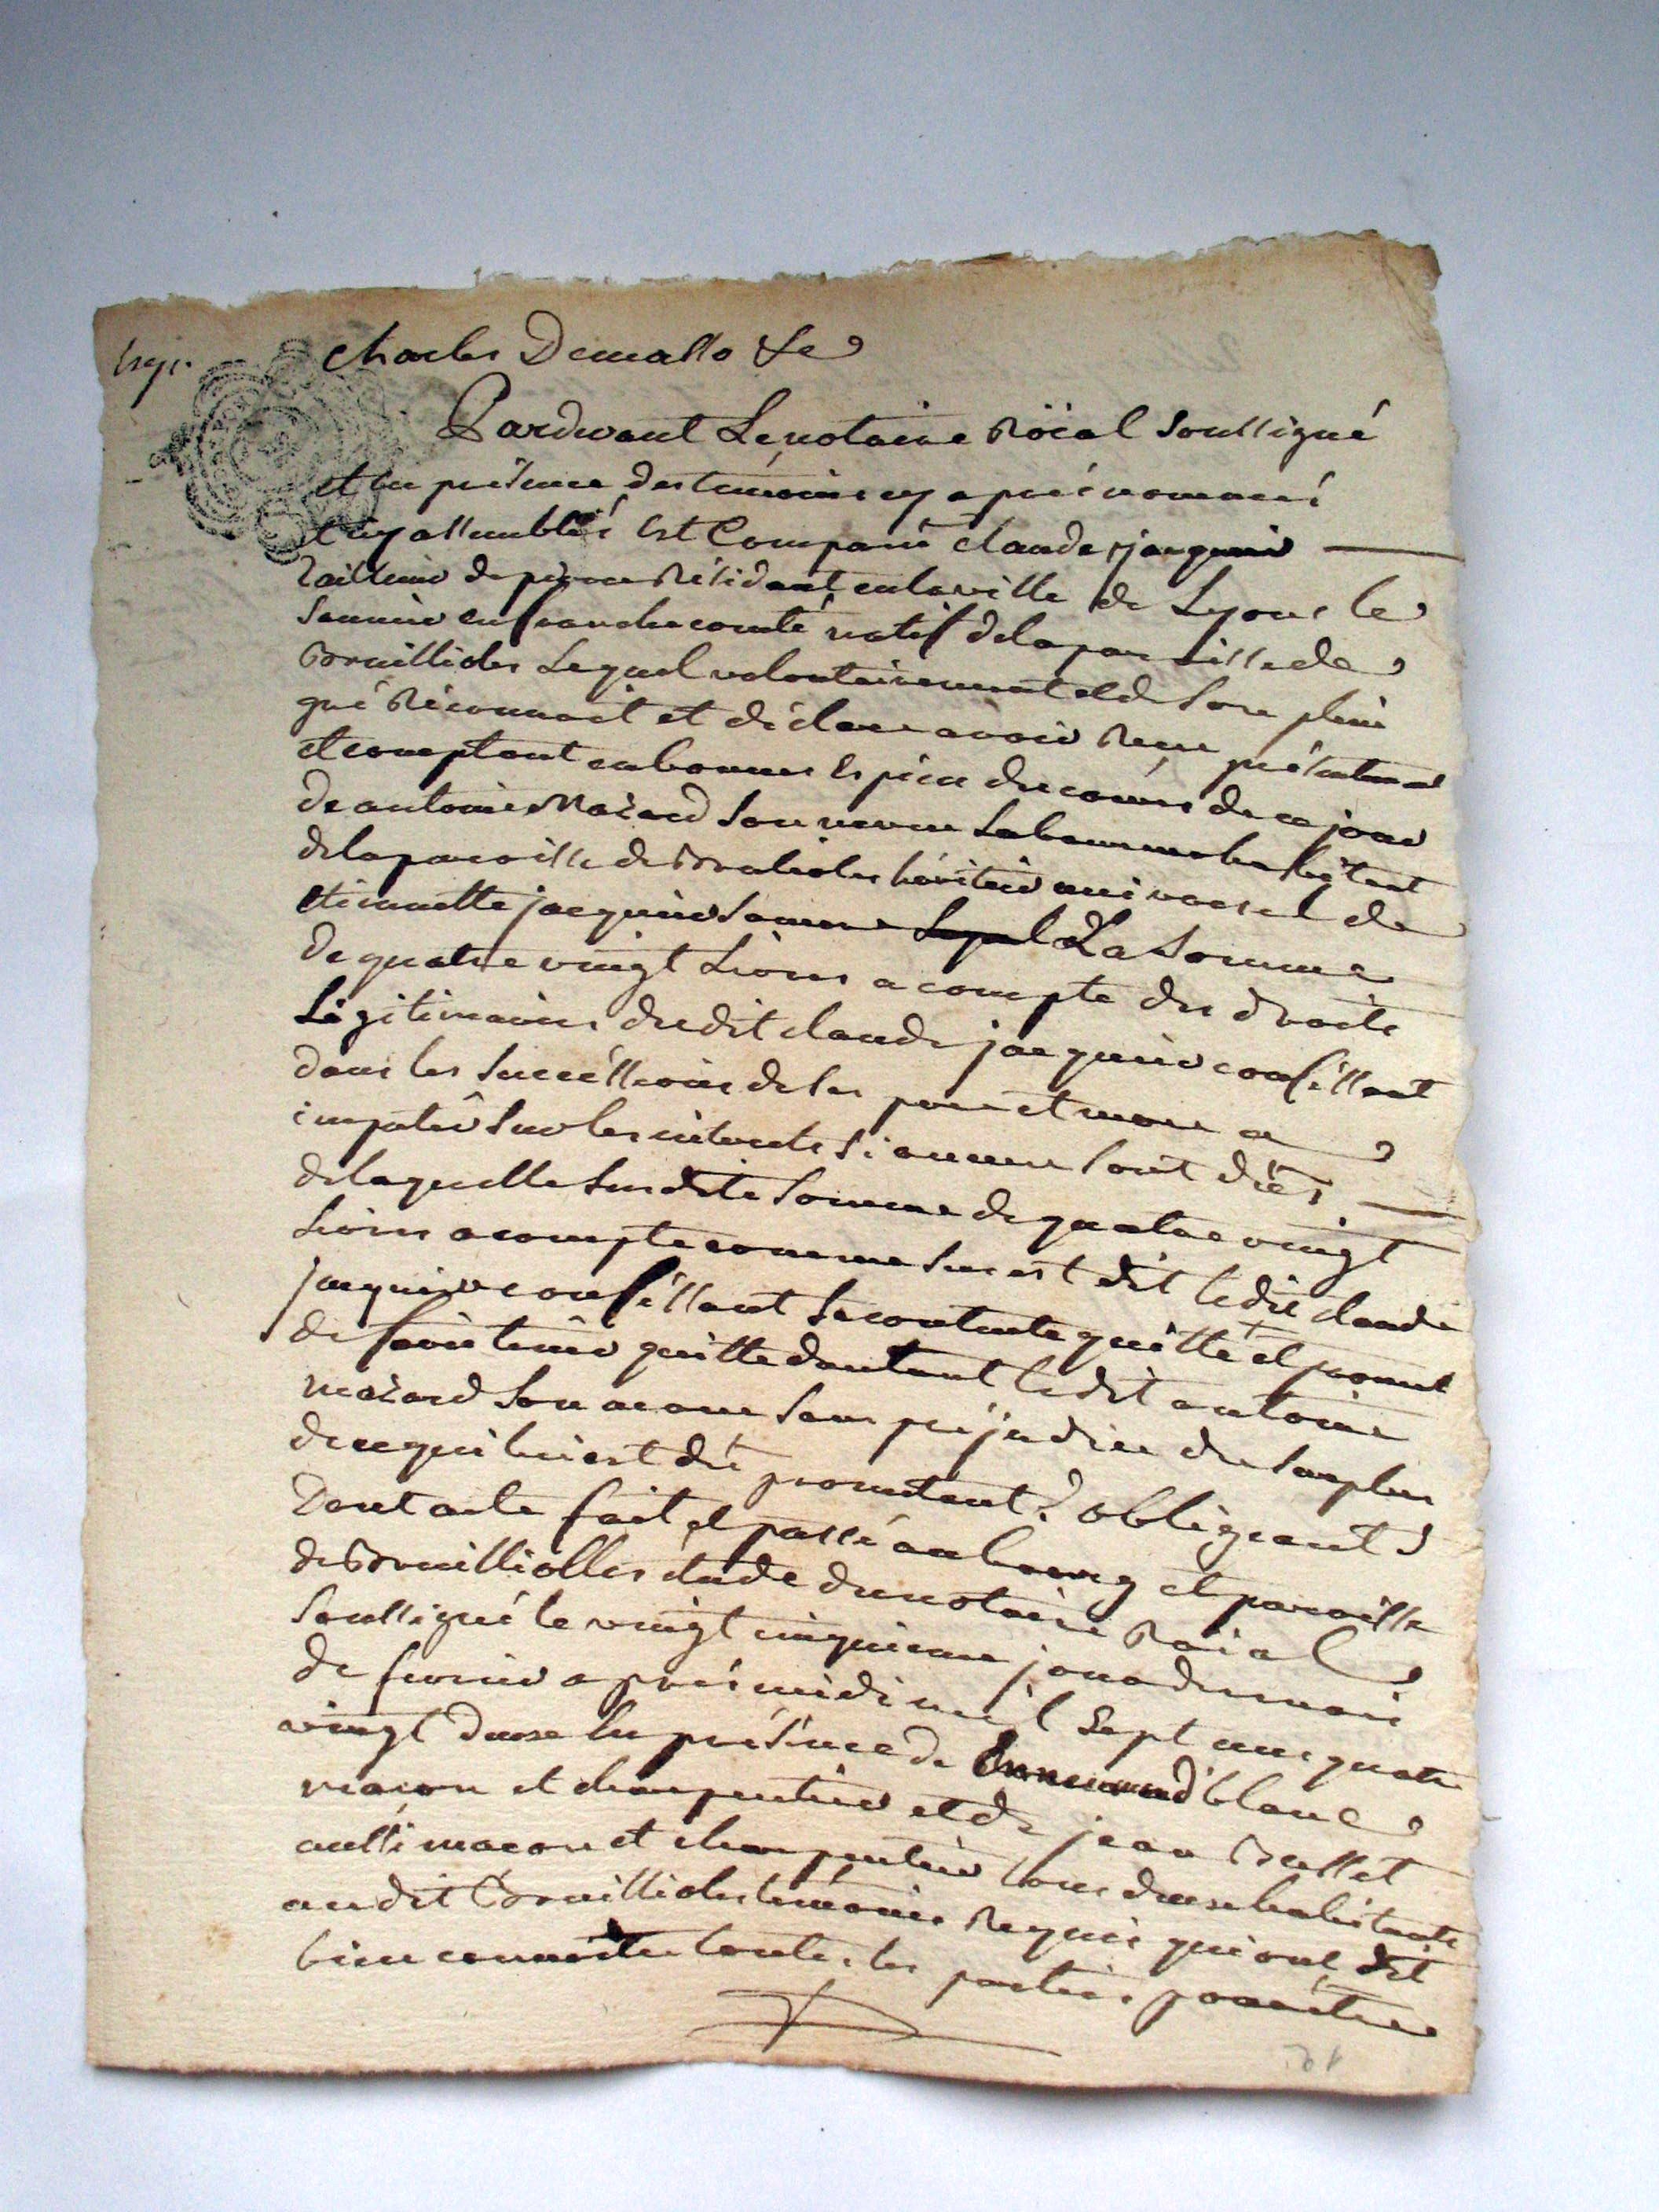 Charles Demasso &c
Pardevant Le notaire Röial soussigné
et en présence des témoins cy aprés nommés
et cy assemblés Est Comparu claude jacquin
tailleur de pierre Résidant en la ville de Lyons le
Saunier en franche comté natif de la paroisse de
Brussillioles Lequel volontairement et de son plein
gré Réconnoit et déclare avoir Reçu présentement
et comptant en bonnes Espèces du cours de ce jour
de antoine Mazard son neveu laboureur habitant
de la paroisse de héritier universel de
Etiennette jacquin sa mere La Somme
De quatre vingt Livres a compte des droits
Légitimaires dudit claude jacquin confessant
dans les succéssions de ses pere et mere a
imputer sur les interets si aucuns sont düés
de laquelle susditte somme de quatre vingt
Livres a compte comme sus est dit ledit claude
jacquin confessant se contente quitte et promet
de faire tenir quitte d'autant ledit antoine
Mazard son neveu sans préjudice du surplus
de ce qui lui est dû promettant &c obligeant &c
Dont acte fait et passé au bourg et paroisse
de étude du notaire Roial
soussigné le vingt cinquieme jour du mois
de fevrier aprés midi mil sept cens quatre
vingt douze En présence de blanc
macon et charpentier et de jean Bussset
aussi macon et charpentier tous deux habitants
audit témoins Requis qui ont dit
bien connoitre toutes les parties pour être